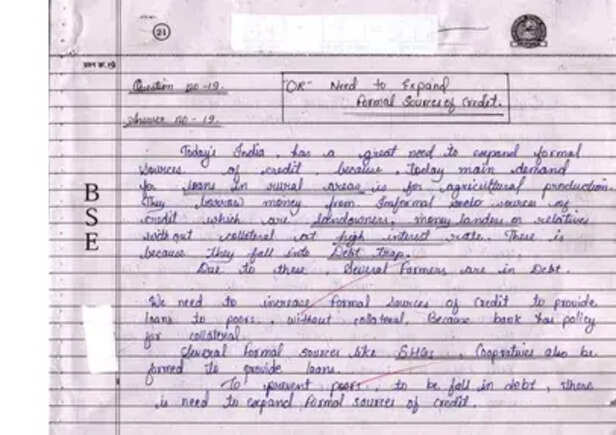 21
प्रश्न क्र. 19
Question no-19.
"OR" Need to Expand
formal Sources of Credit.
Answer no - 19.
Today's India, has a great need to expand formal
sources of credit, because, Today main demand
for loans in rural areas is for agricultural production
They borrow money from Informal sources of
credit which are landowners, money landers or relatives
without collateral at high interest rate. There is
because they fall into Debt trap.
Due to these, Several Farmers are in Debt.
We need to increase formal sources of credit to provide
loans to poors, without collateral. Because bank has policy
for collateral.
Several formal sources like SHGs, Coopratives also be
formed to provide loans.
To prevent poors, to be fall in debt, there
is need to expand formal sources of credit.
B
S
E